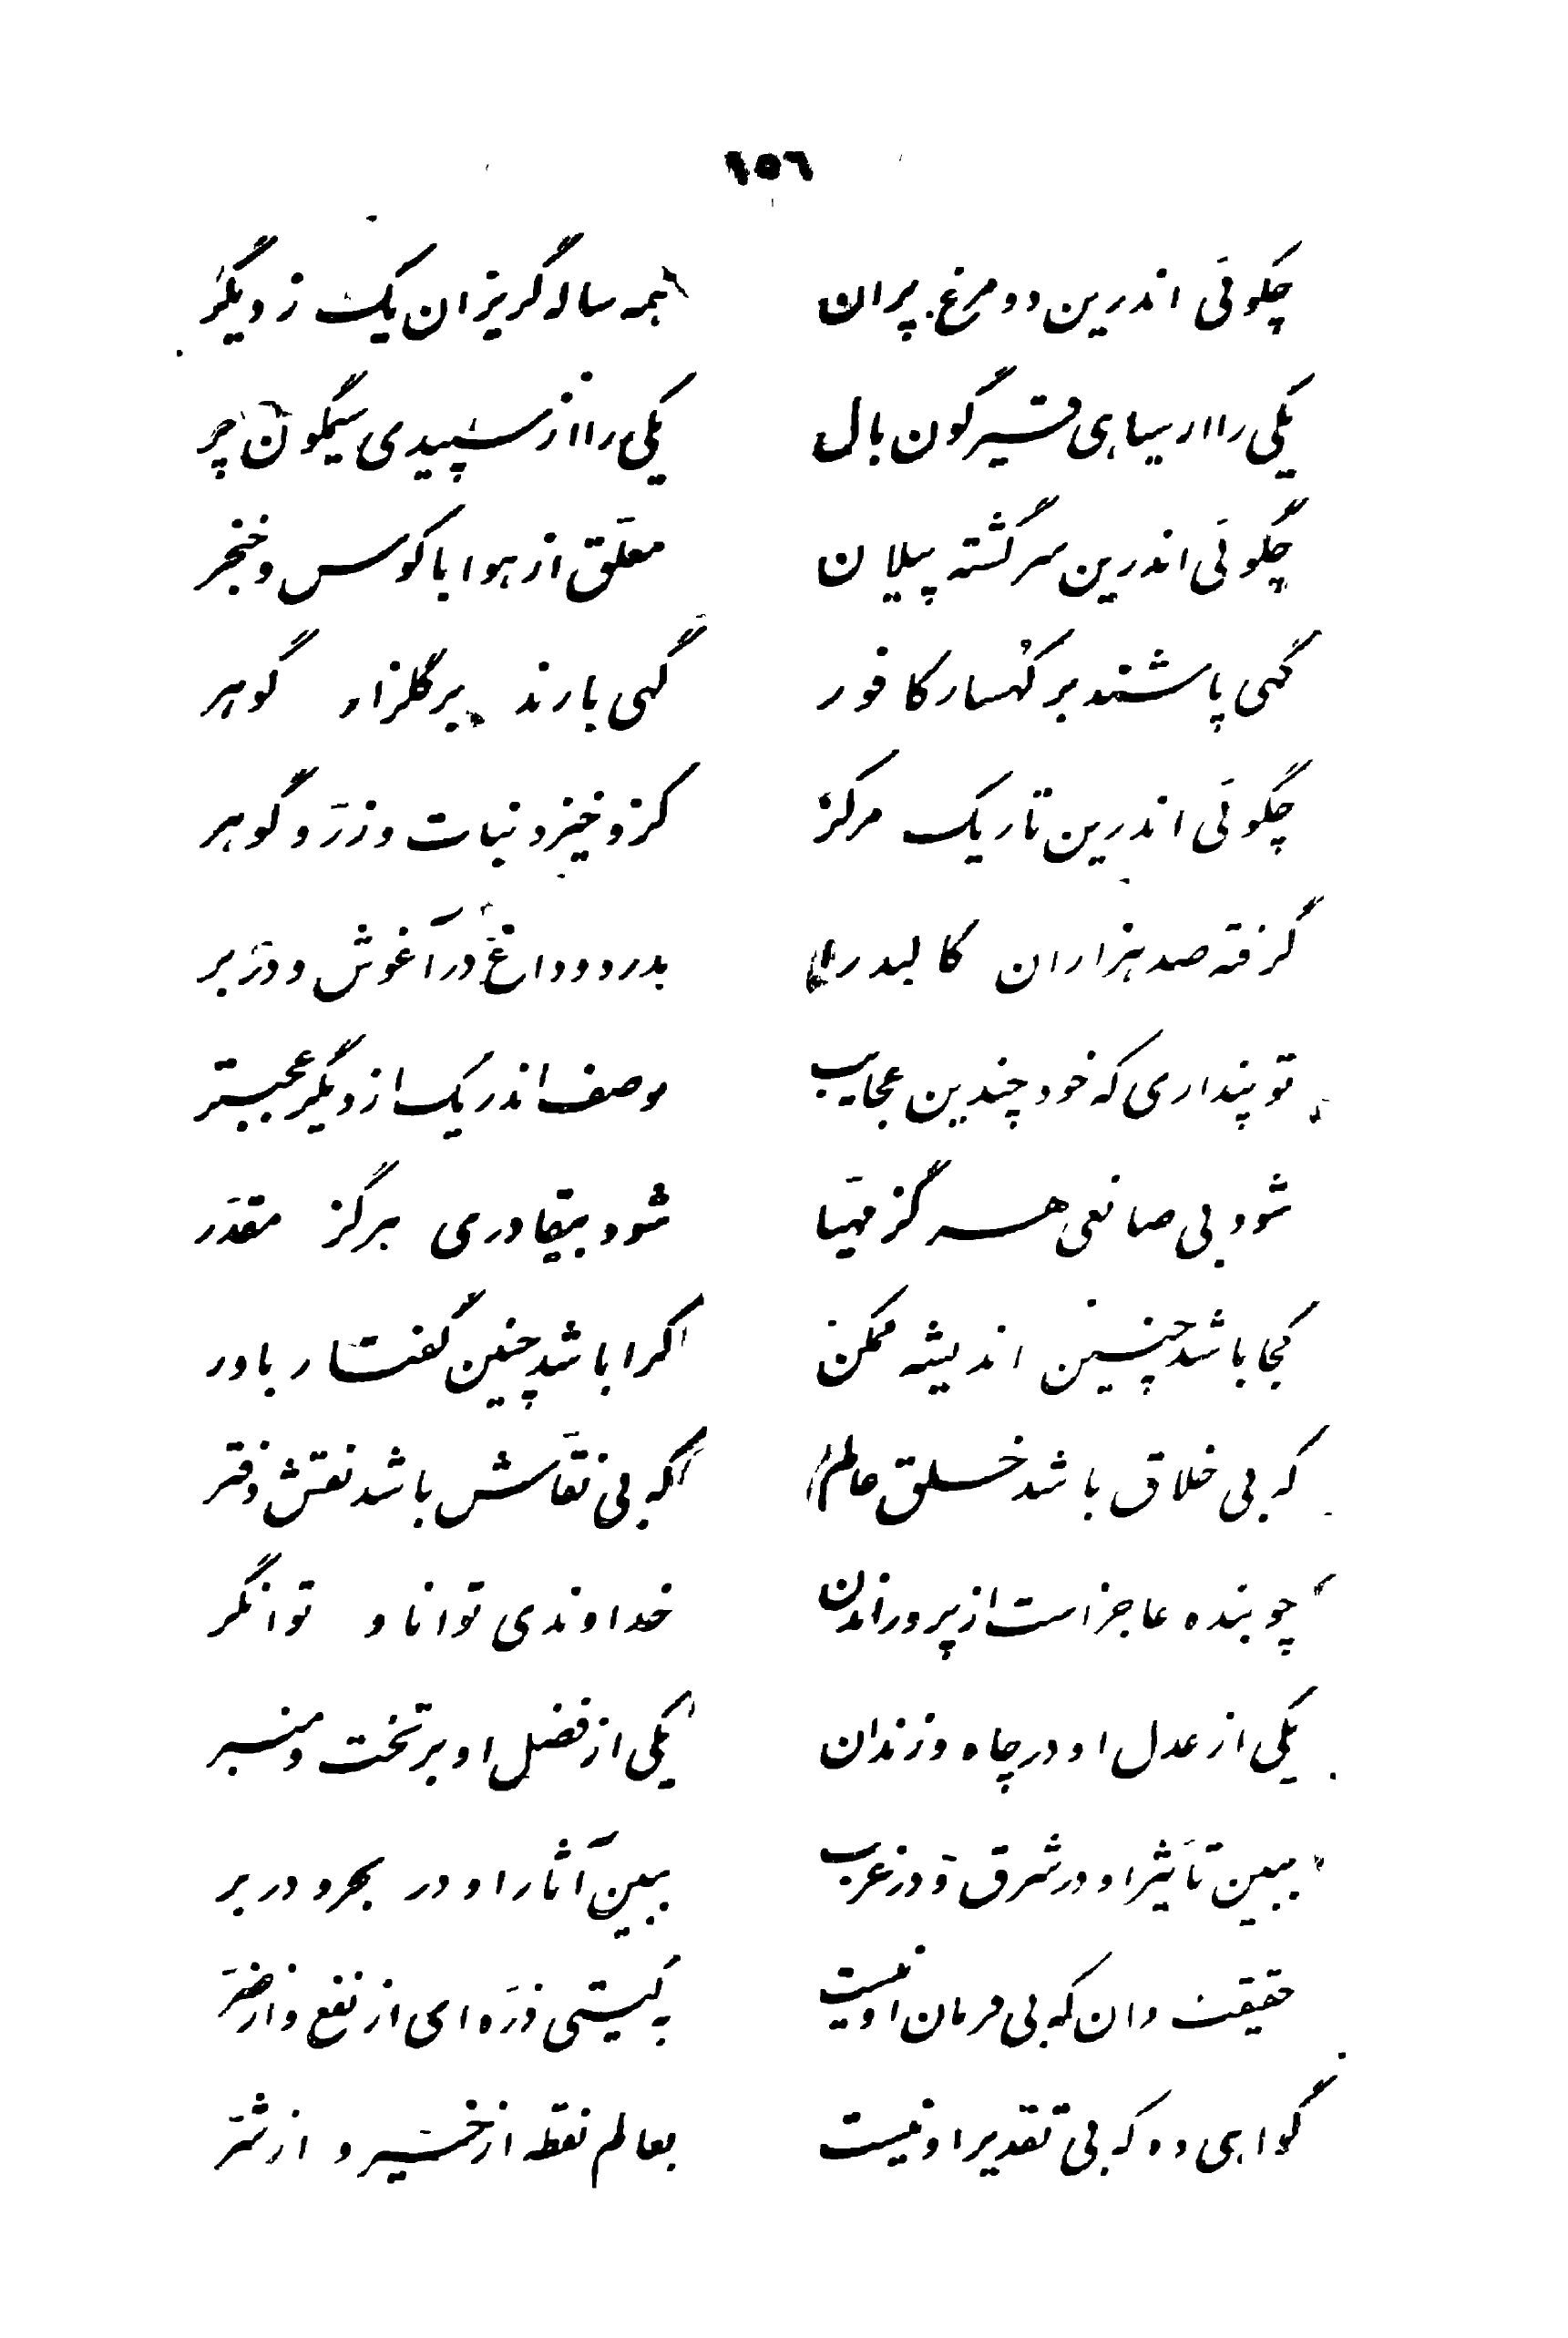 ١٥٦
چگوئی اندرین دو مرغ پران همه ساله گریزان یک ز دیگر
یکی را از سیاهی قیرگون بال یکی را از سپیدی سیمگون پر
چگوئی اندرین سرگشته پیلان معلّق از هوا با کوس و خنجر
گهی پاشند بر کهسار کافور گهی بارند بر گلزار گوهر
چگوئی اندرین تاریک مرکز کزو خیزد نبات و زرّ و گوهر
گرفته صد هزاران کالبد را بدرد و داغ در آغوش و در بر
تو پنداری که خود چندین عجایب بوصف اندر یک از دیگر عجبتر
شود بی صانعی هرگز مهیّا شود بیقادری هرگز مقدّر
کجا باشد چنین اندیشه ممکن کرا باشد چنین گفتار باور
که بی خلاق باشد خلق عالم که بی نقّاش باشد نقش دفتر
چو بنده عاجز است از پروراندن خداوندی توانا و توانگر
یکی از عدل او در چاه و زندان یکی از فضل او بر تخت و منبر
ببین تأثیر او در شرق و در غرب ببین آثار او در بحر و در بر
حقیقت دان که بی فرمان او نیست بگیتی ذرّه ای از نفع و از ضرّ
گواهی ده که بی تقدیر او نیست بعالم نقطه از خیر و از شرّ